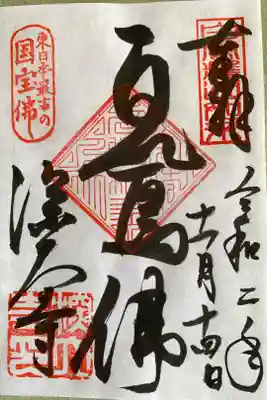 奉拝
令和二年
十一月十四日
白鳳佛
東日本最古の
国宝佛
深大寺